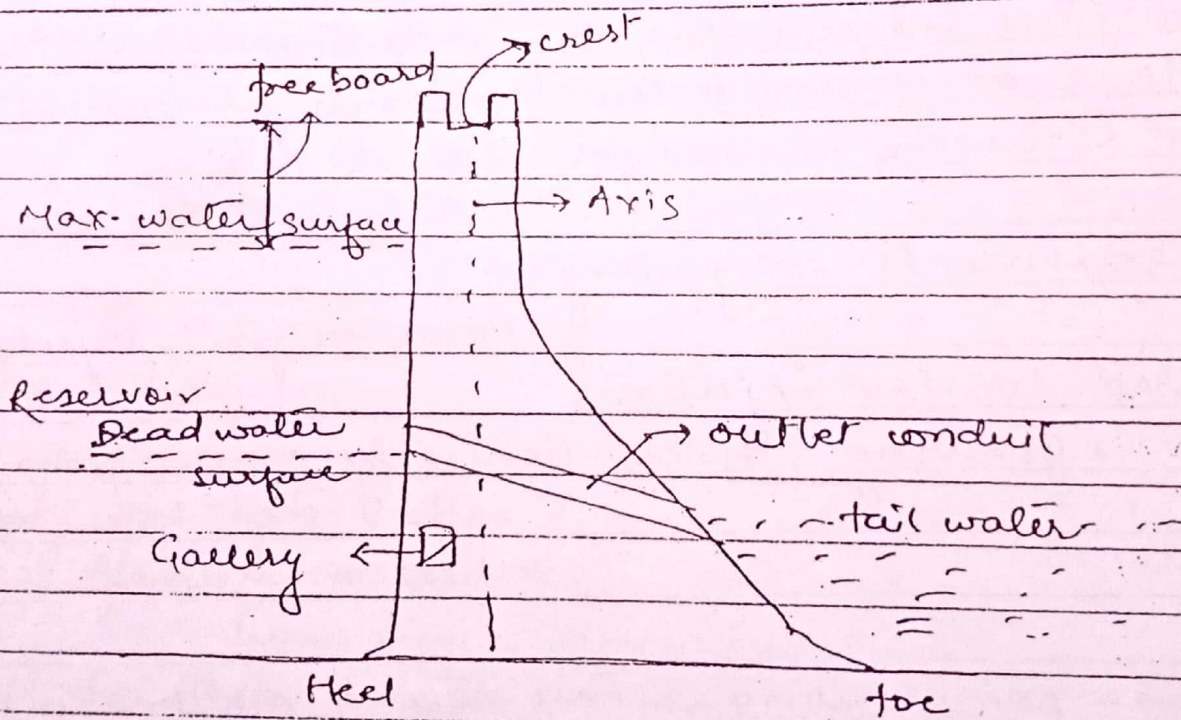 crest
freeboard
Axis
Max. water surface
Reservoir
Dead water
surface
outlet conduit
tail water
Gallery
Heel
toe